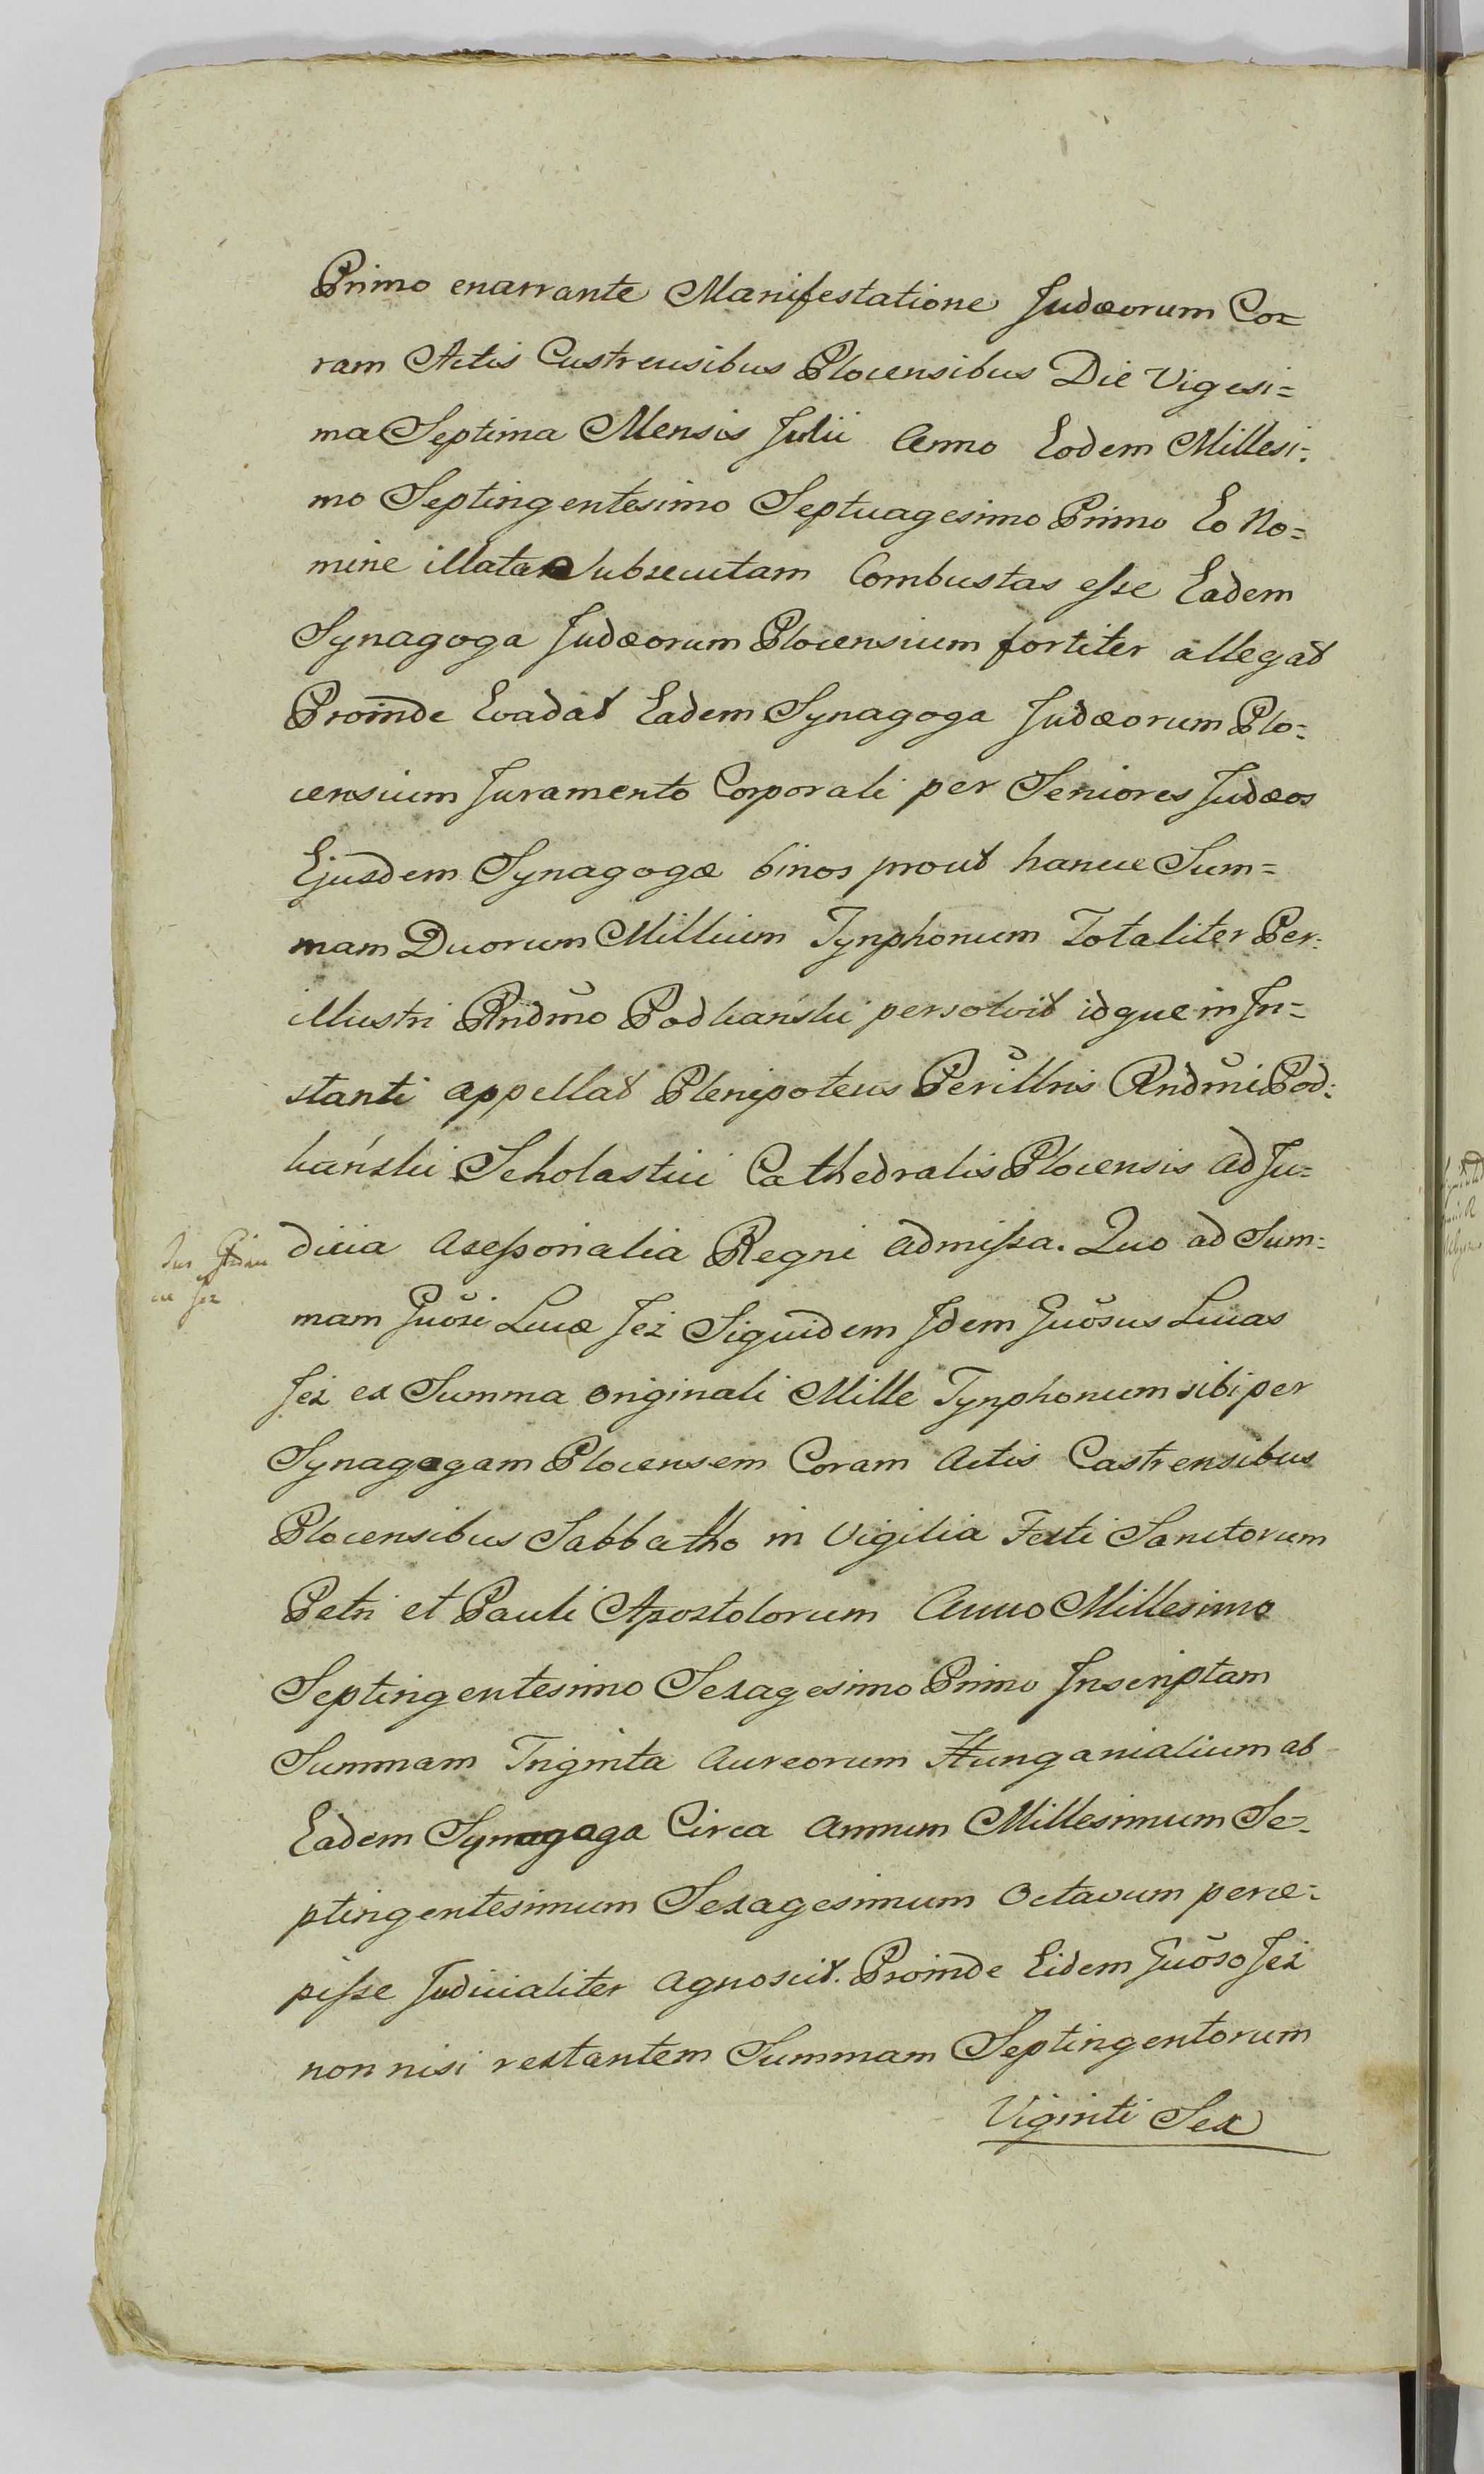 Primo enarrante Manifestatione Judæorum Co=
ram Actis Castrensibus Plocensibus Die Vigesi=
ma Septima Mensis Julii Anno Eodem Millesi=
mo Septingentesimo Septuagesimo Primo Eo No=
mine illata Subsecutam Combustas esse Eadem
Synagoga Judæorum Plocensium fortiter allegat
Proinde Evadat Eadem Synagoga Judæorum Plo=
censium Juramento Corporali per Seniores Judæos
Ejusdem Synagogæ binos prout hancce Sum=
mam Duorum Millium Tynphonum Totaliter Per=
illustri Rndmo Podkański persolvit idque in In=
stanti appellat Plenipotens Perillris Rndmi Pod=
kański Scholastici Cathedralis Plocensis ad Ju=
dicia Assessorialia Regni admissa. Quo ad Sum=
mam Gnosi Lucæ Jez Siquidem Idem Gnosus Lucas
Jez ex Summa originali Mille Tynphonum sibi per
Synagogam Plocensem Coram Actis Castrensibus
Plocensibus Sabbatho in Vigilia Festi Sanctorum
Petri et Pauli Apostolorum Anno Millesimo
Septingentesimo Sexagesimo Primo Inscriptam
Summam Triginta Aureorum Hungaricalium ab
Eadem Synagoga Circa Annum Millesimum Se=
ptingentesimum Sexagesimum Octavum perce=
pisse Judicialiter agnoscit. Proinde Eidem Gnoso Jez
non nisi restantem Summam Septingentorum
Viginti Sex